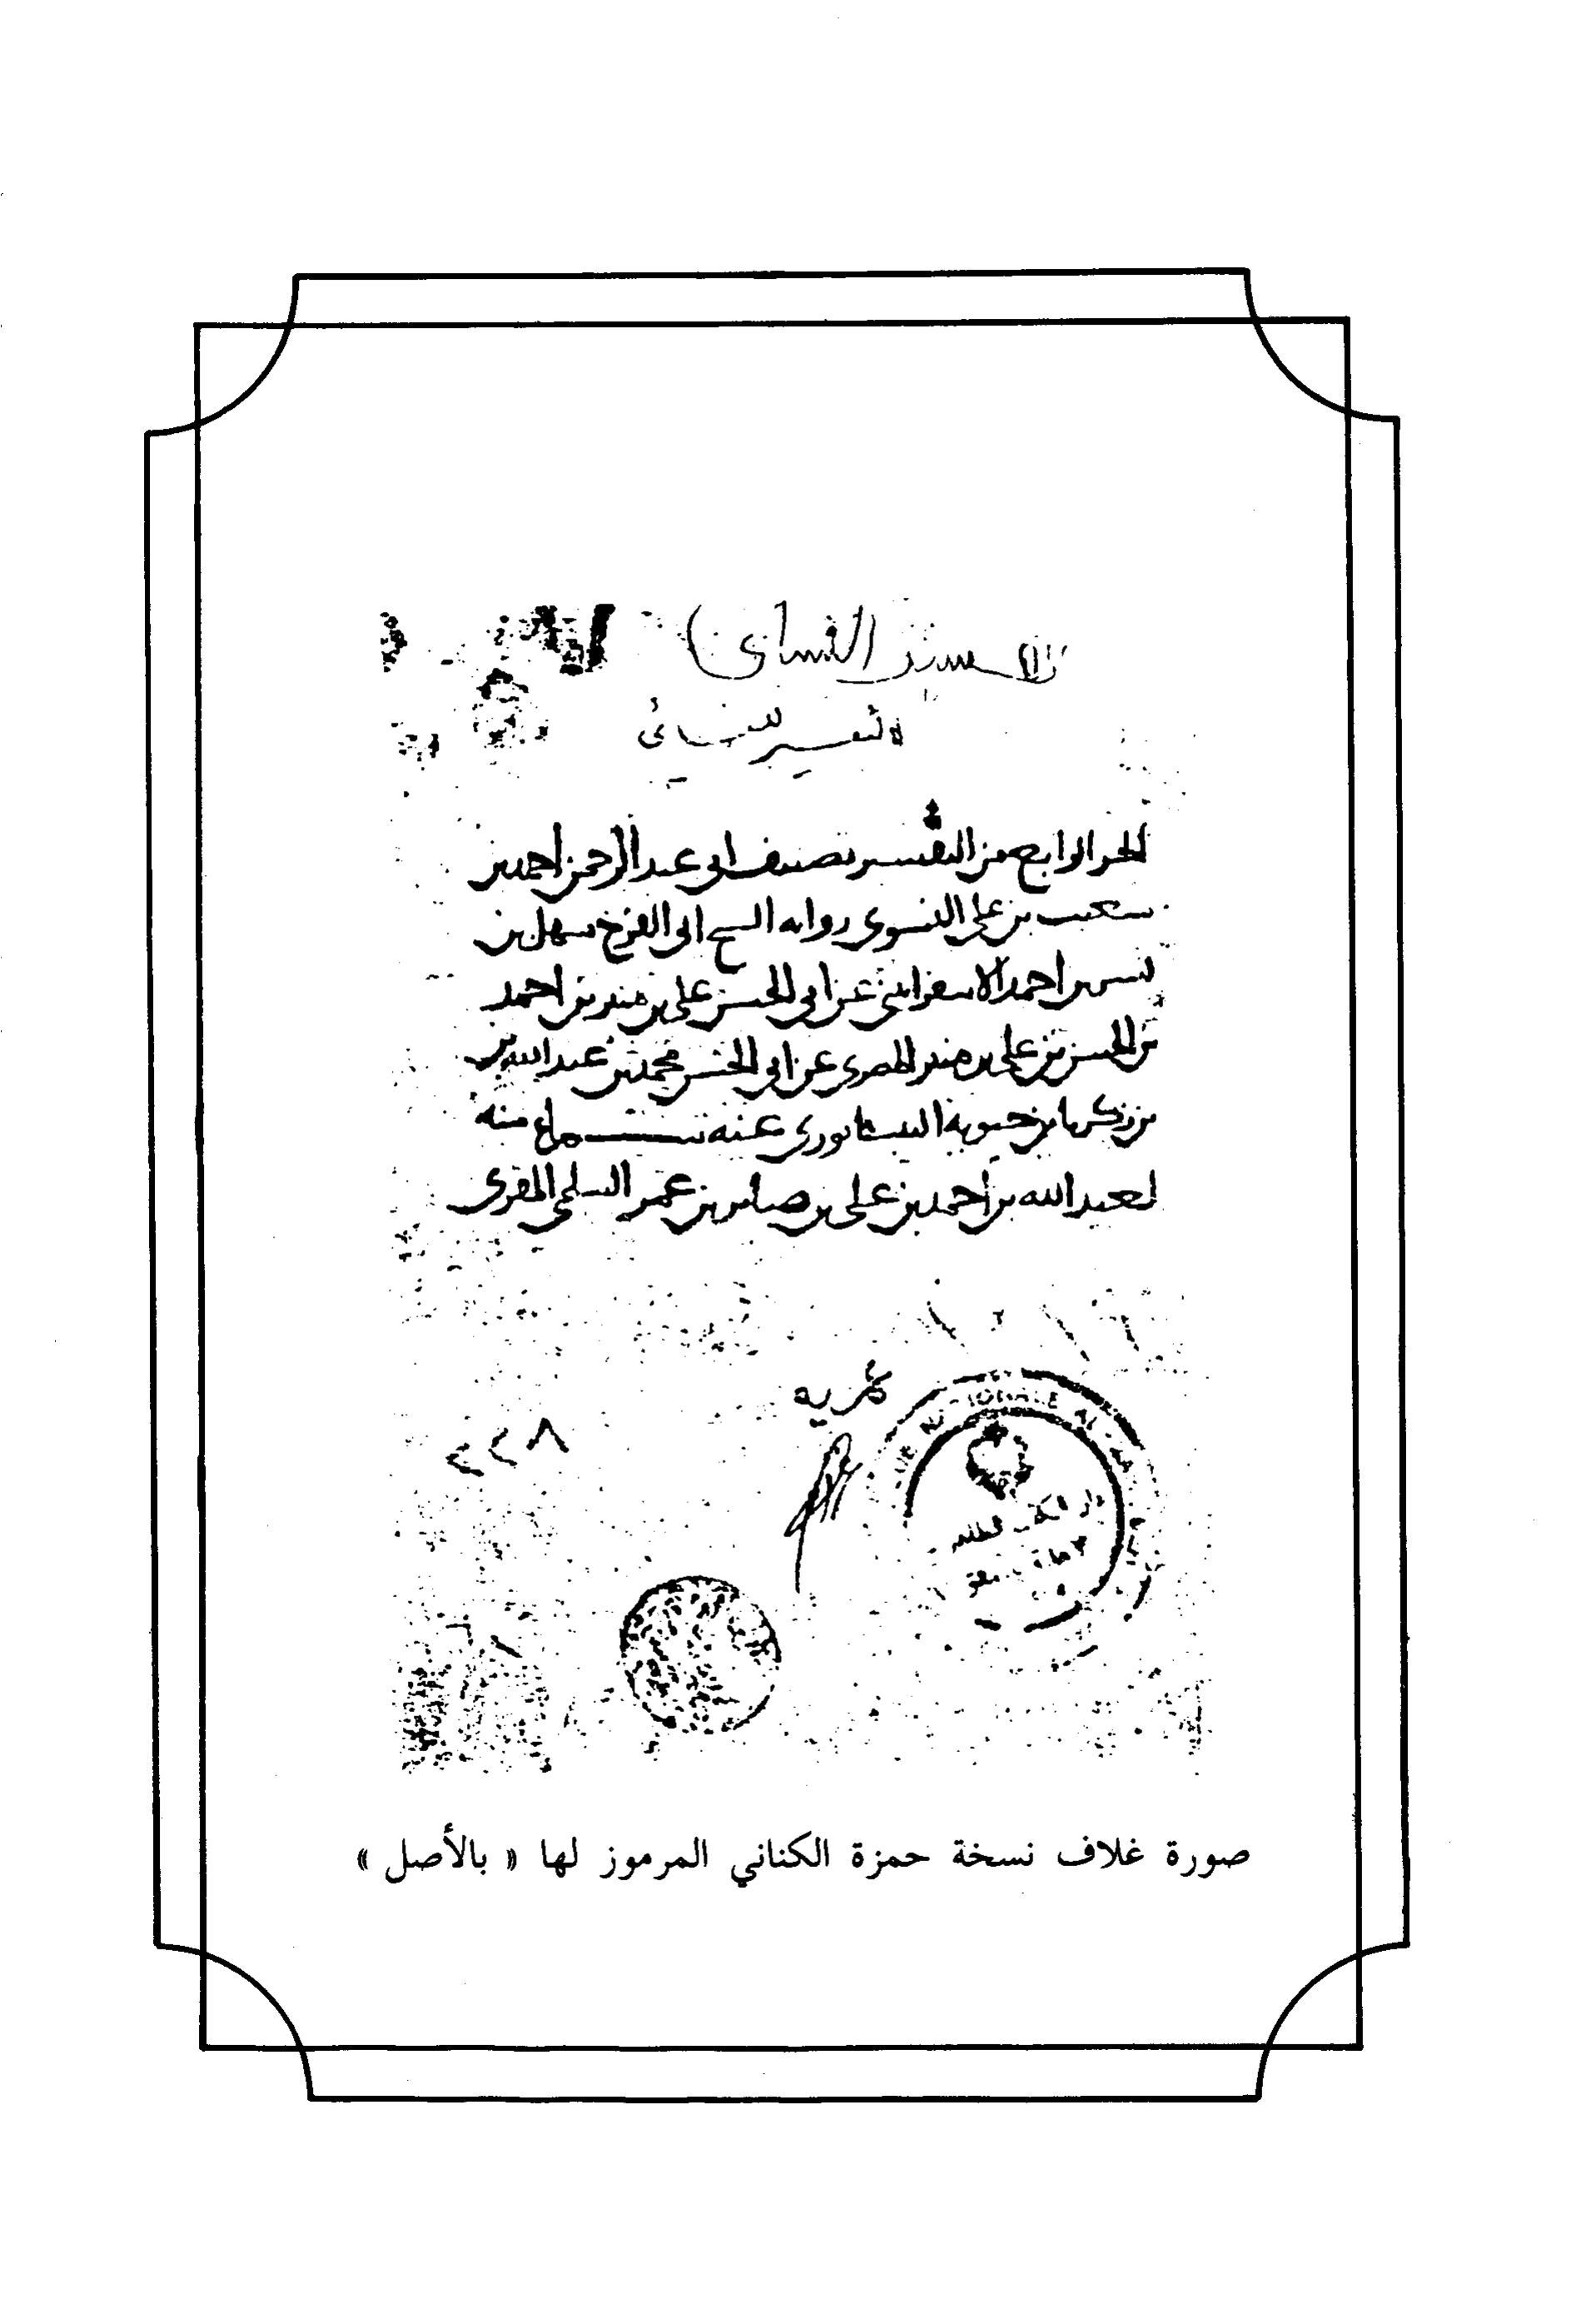 التفسير للنسائي
الجز الرابع من التفسير تصنيف ابي عبد الرحمن احمد بن
شعيب بن علي النسوي روايه الشيخ ابي الفرج سهل بن
بشر بن احمد الاسفرايني عن ابي الحسن علي بن منير بن احمد
بن الحسن بن علي بن منير المصري عن ابي الحسن محمد بن عبد الله بن
بن زكريا بن حيويه النيسابوري عنه سماع منه
لعبد الله بن احمد بن علي بن صابر بن عمر السلمي المقري
عمريه
صورة غلاف نسخة حمزة الكناني المرموز لها « بالأصل »